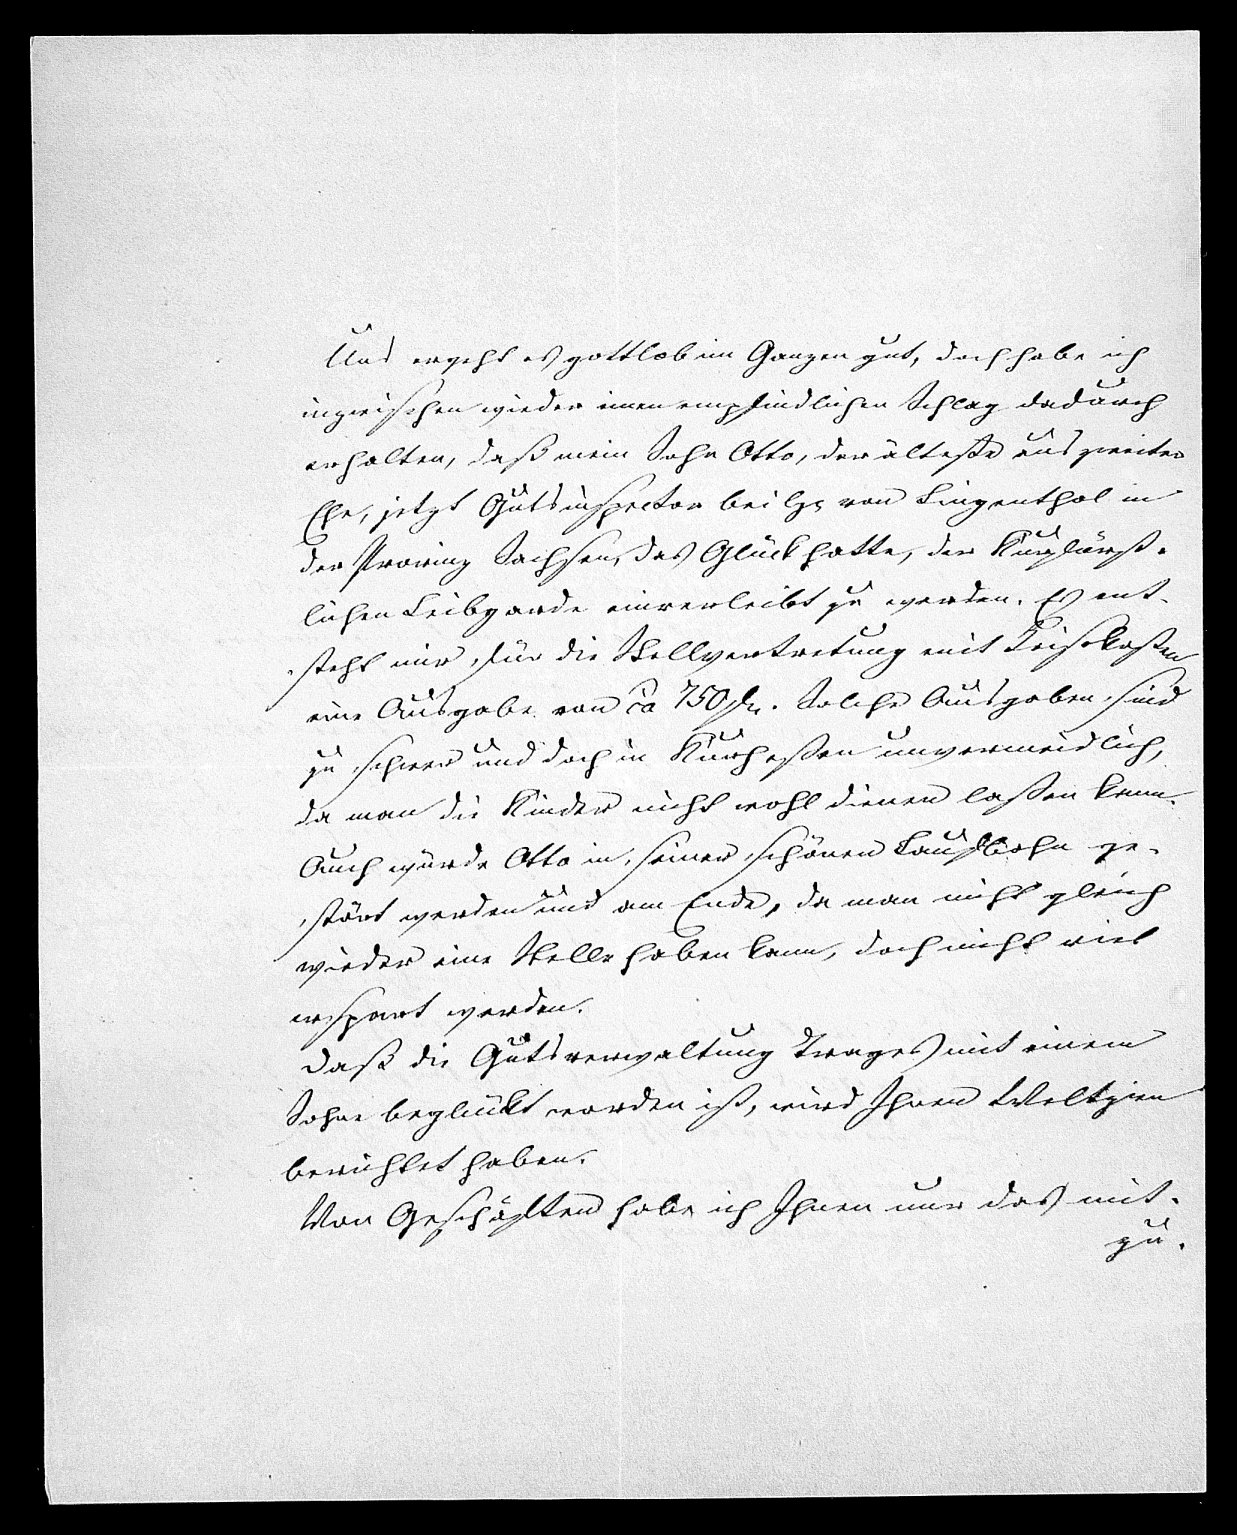 Uns ergeht es gottlob im Ganzen gut, doch habe ich
inzwischen wieder einen empfindlichen Schlag dadurch
erhalten, daß mein Sohn Otto, der älteste aus zweiter
Ehe, jetzt Gutsinspector bei H. von Lingenthal in
der Provinz Sachsen, das Glück hatte, der Kurfürst-
lichen Leibgarde einverleibt zu werden. Es ent-
steht mir für die Stellvertretung mit Reisekosten
eine Ausgabe von ca 750 fl. Solche Ausgaben sind
zu schwer und doch in Kurhessen unvermeidlich,
da man die Kinder nicht wohl dienen laßen kann.
Auch würde Otto in seiner schönen Laufbahn ge-
stört werden und am Ende, da man nicht gleich
wieder eine Stelle haben kann, doch nicht viel
erspart werden.
Daß die Gutsverwaltung Trages mit einem
Sohne beglückt worden ist, wird Ihnen Weltzien
berichtet haben.
Von Geschäften habe ich Ihnen nur das mit-
zu-